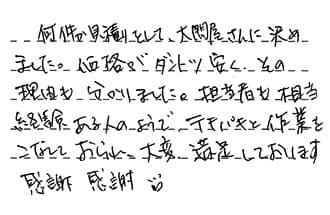 何件か見積りして、大問屋さんに決め
ました。価格がダントツ安く、その
理由も分かりました。担当者も相当
経験ある人のようで、テキパキと作業を
こなしておられ、大変満足しております
感謝 感謝